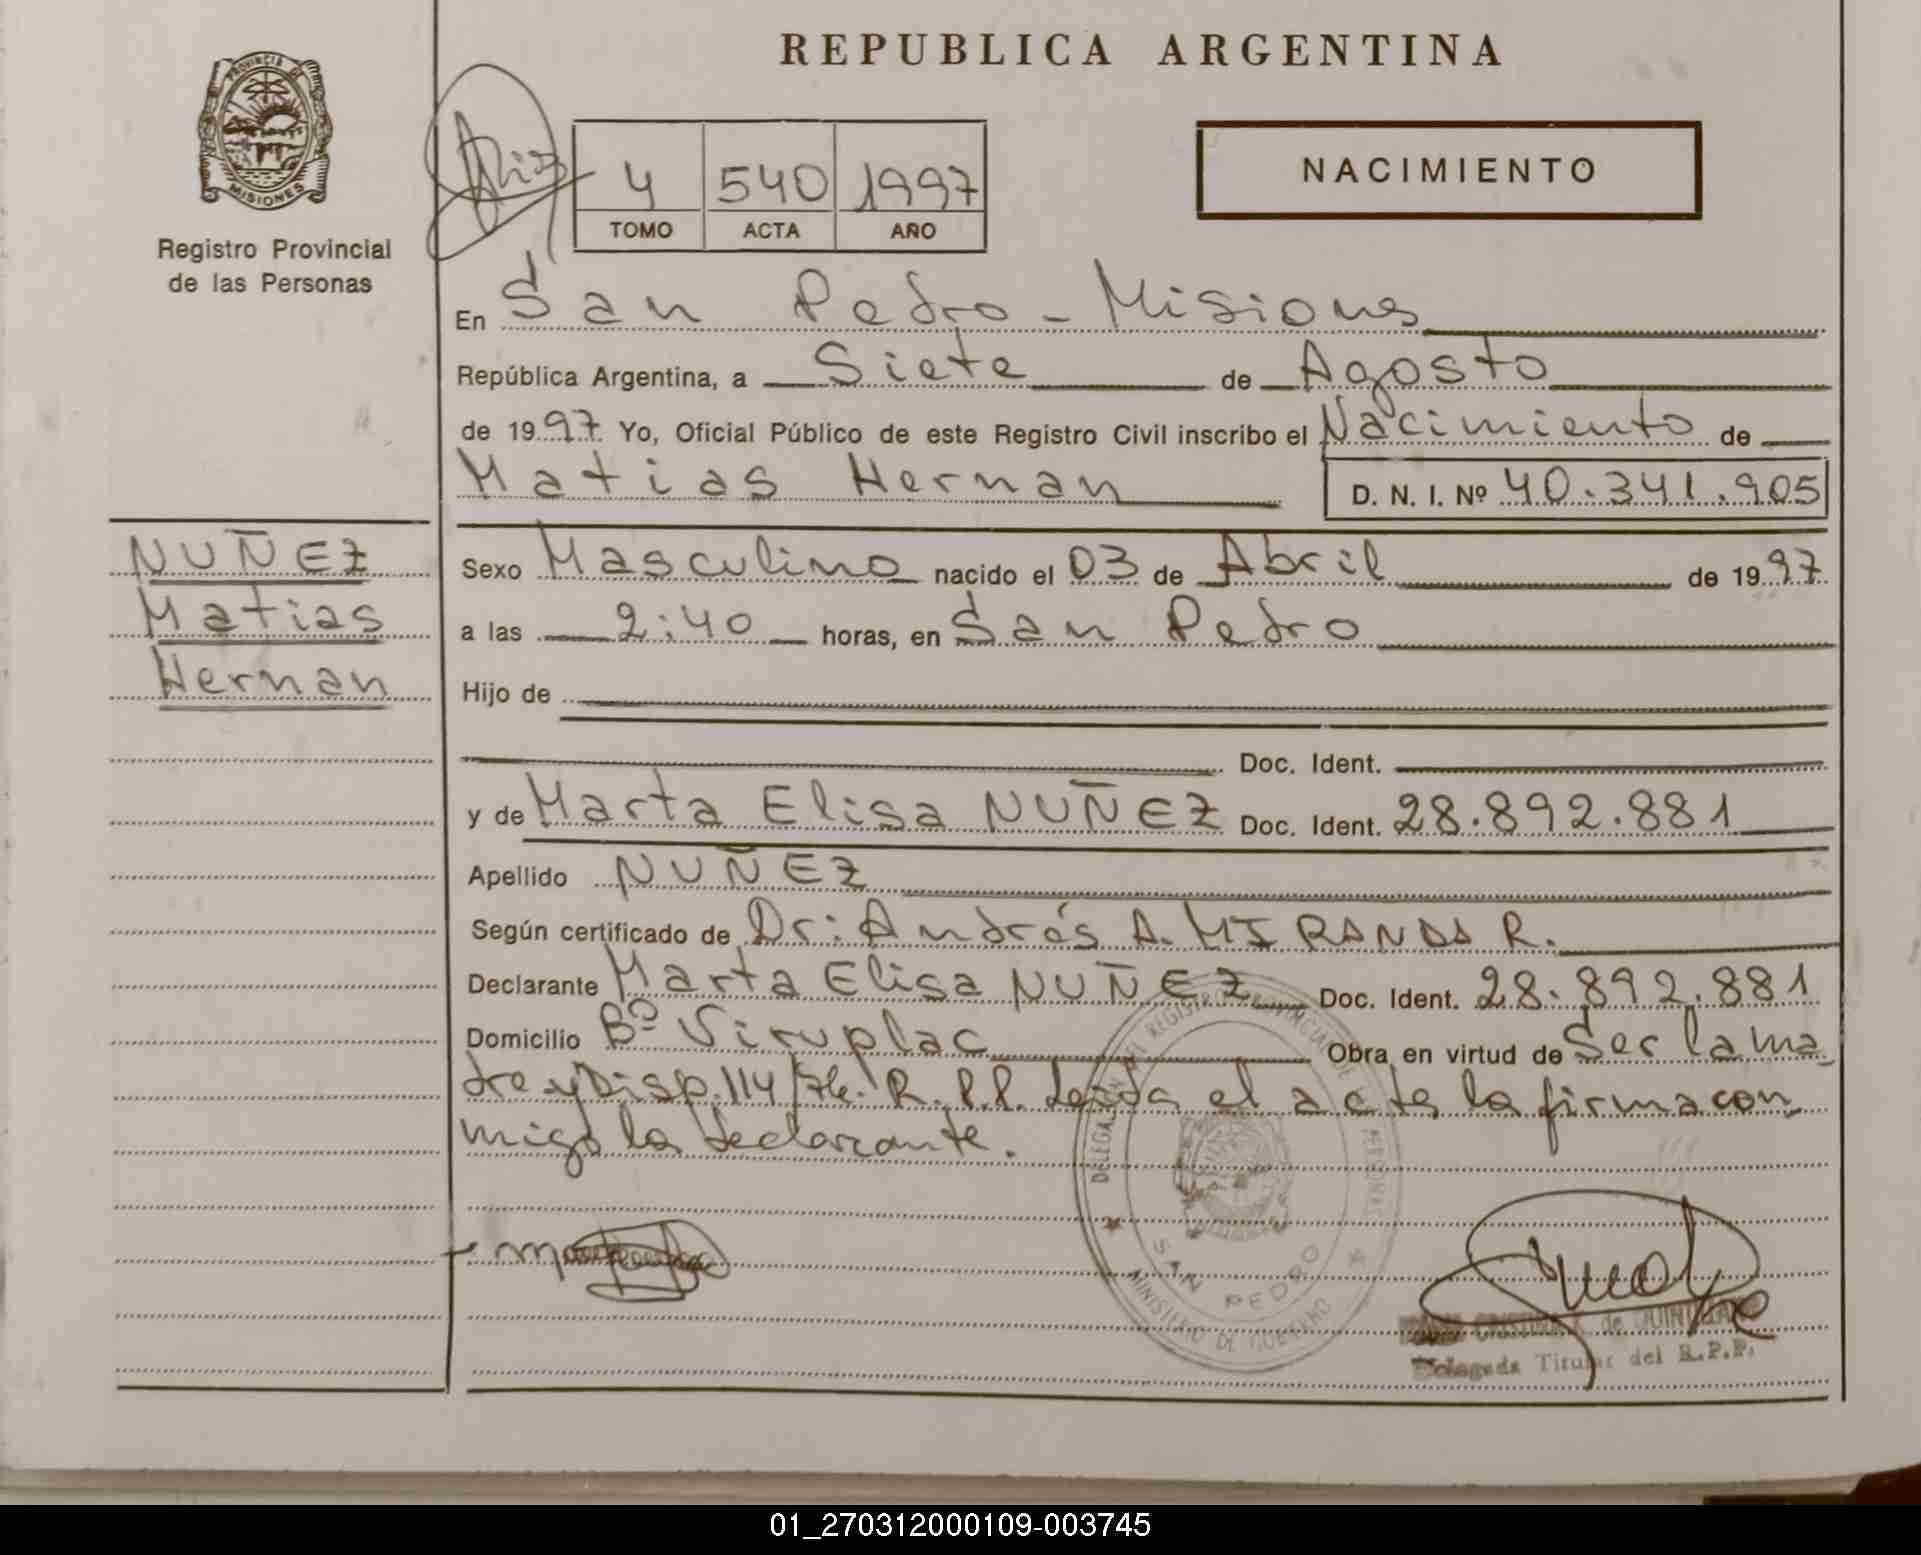 REPUBLICA ARGENTINA
PROVINCIA DE
MISIONES
Registro Provincial
de las Personas
4 540 1997
TOMO ACTA AÑO
NACIMIENTO
En San Pedro - Misiones
República Argentina, a Siete de Agosto
de 1997 Yo, Oficial Público de este Registro Civil inscribo el Nacimiento de
Matias Hernan D. N. I. Nº 40.341.905
NUÑEZ
Matias
Hernan
Sexo Masculino nacido el 03 de Abril de 1997
a las 2:40 horas, en San Pedro
Hijo de
Doc. Ident.
y de Marta Elisa NUÑEZ Doc. Ident. 28.892.881
Apellido NUÑEZ
Según certificado de Dr: Andrés A. MIRANDA R.
Declarante Marta Elisa NUÑEZ Doc. Ident. 28.892.881
Domicilio Bº Viruplac Obra en virtud de Ser la ma-
dre y Disp. 114/76. R.P.P. Leida el acta la firma con
migo la declarante.
DELEGACION DEL REGISTRO PROVINCIAL DE LAS PERSONAS
SAN PEDRO
MINISTERIO DE GOBIERNO
CRISTINA de
Delegada Titular del R.P.P.
01_270312000109-003745